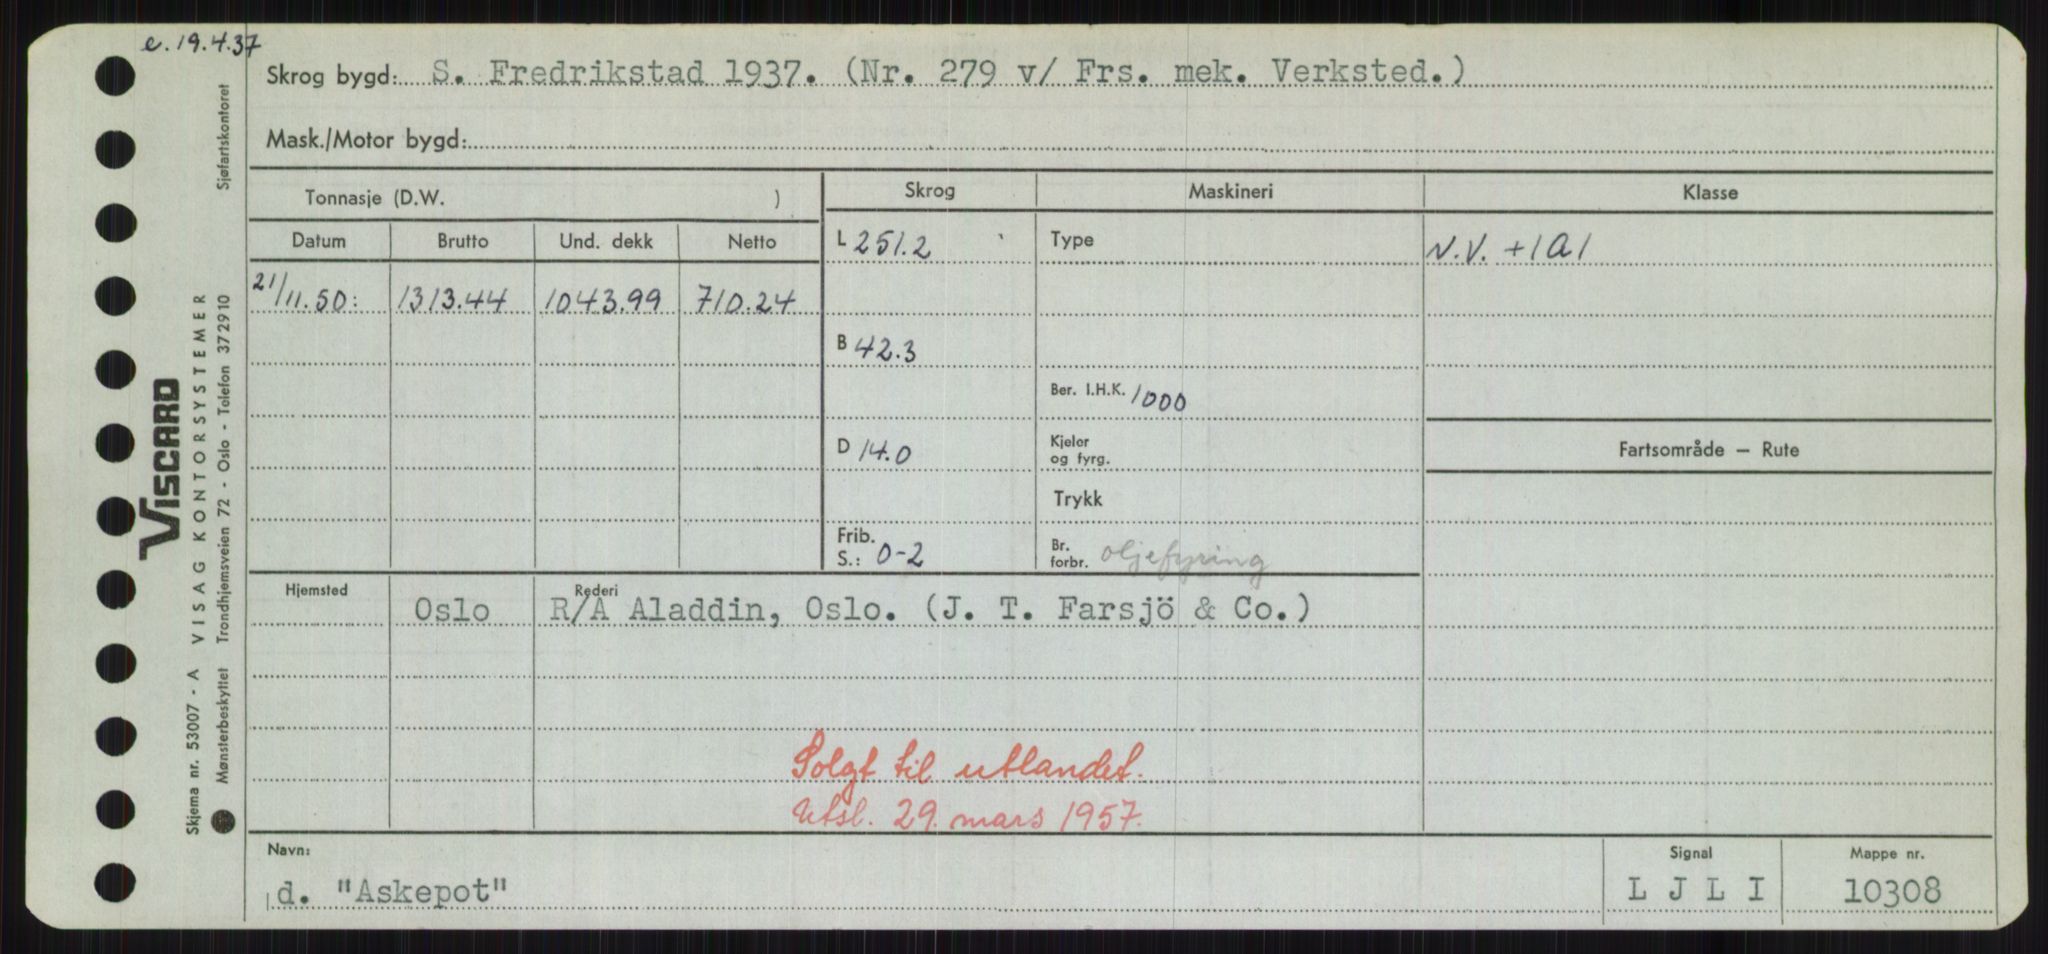 e. 19.4.37
Skrog bygd: S. Fredrikstad 1937. (Nr. 279 v/ Frs. mek. Verksted.)
Mask./Motor bygd:
Tonnasje (D.W. )
Skrog
Maskineri
Klasse
Datum Brutto Und. dekk Netto
L 251.2
Type
N.V. +1A1
21/11.50: 1313.44 1043.99 710.24
B 42.3
Ber. I.H.K. 1000
D 14.0
Kjeler
og fyrg.
Fartsområde — Rute
Trykk
Frib.
S.: 0-2
Br.
forbr. oljefyring
Hjemsted
Rederi
Oslo R/A Aladdin, Oslo. (J. T. Farsjö & Co.)
Solgt til utlandet.
Utsl. 29. mars 1957.
Navn:
Signal
Mappe nr.
d. "Askepot" L J L I 10308
VISCARD
Skjema nr. 53007 - A VISAG KONTORSYSTEMER
Mønsterbeskyttet Trondhjemsveien 72 - Oslo - Telefon 372910
Sjøfartskontoret